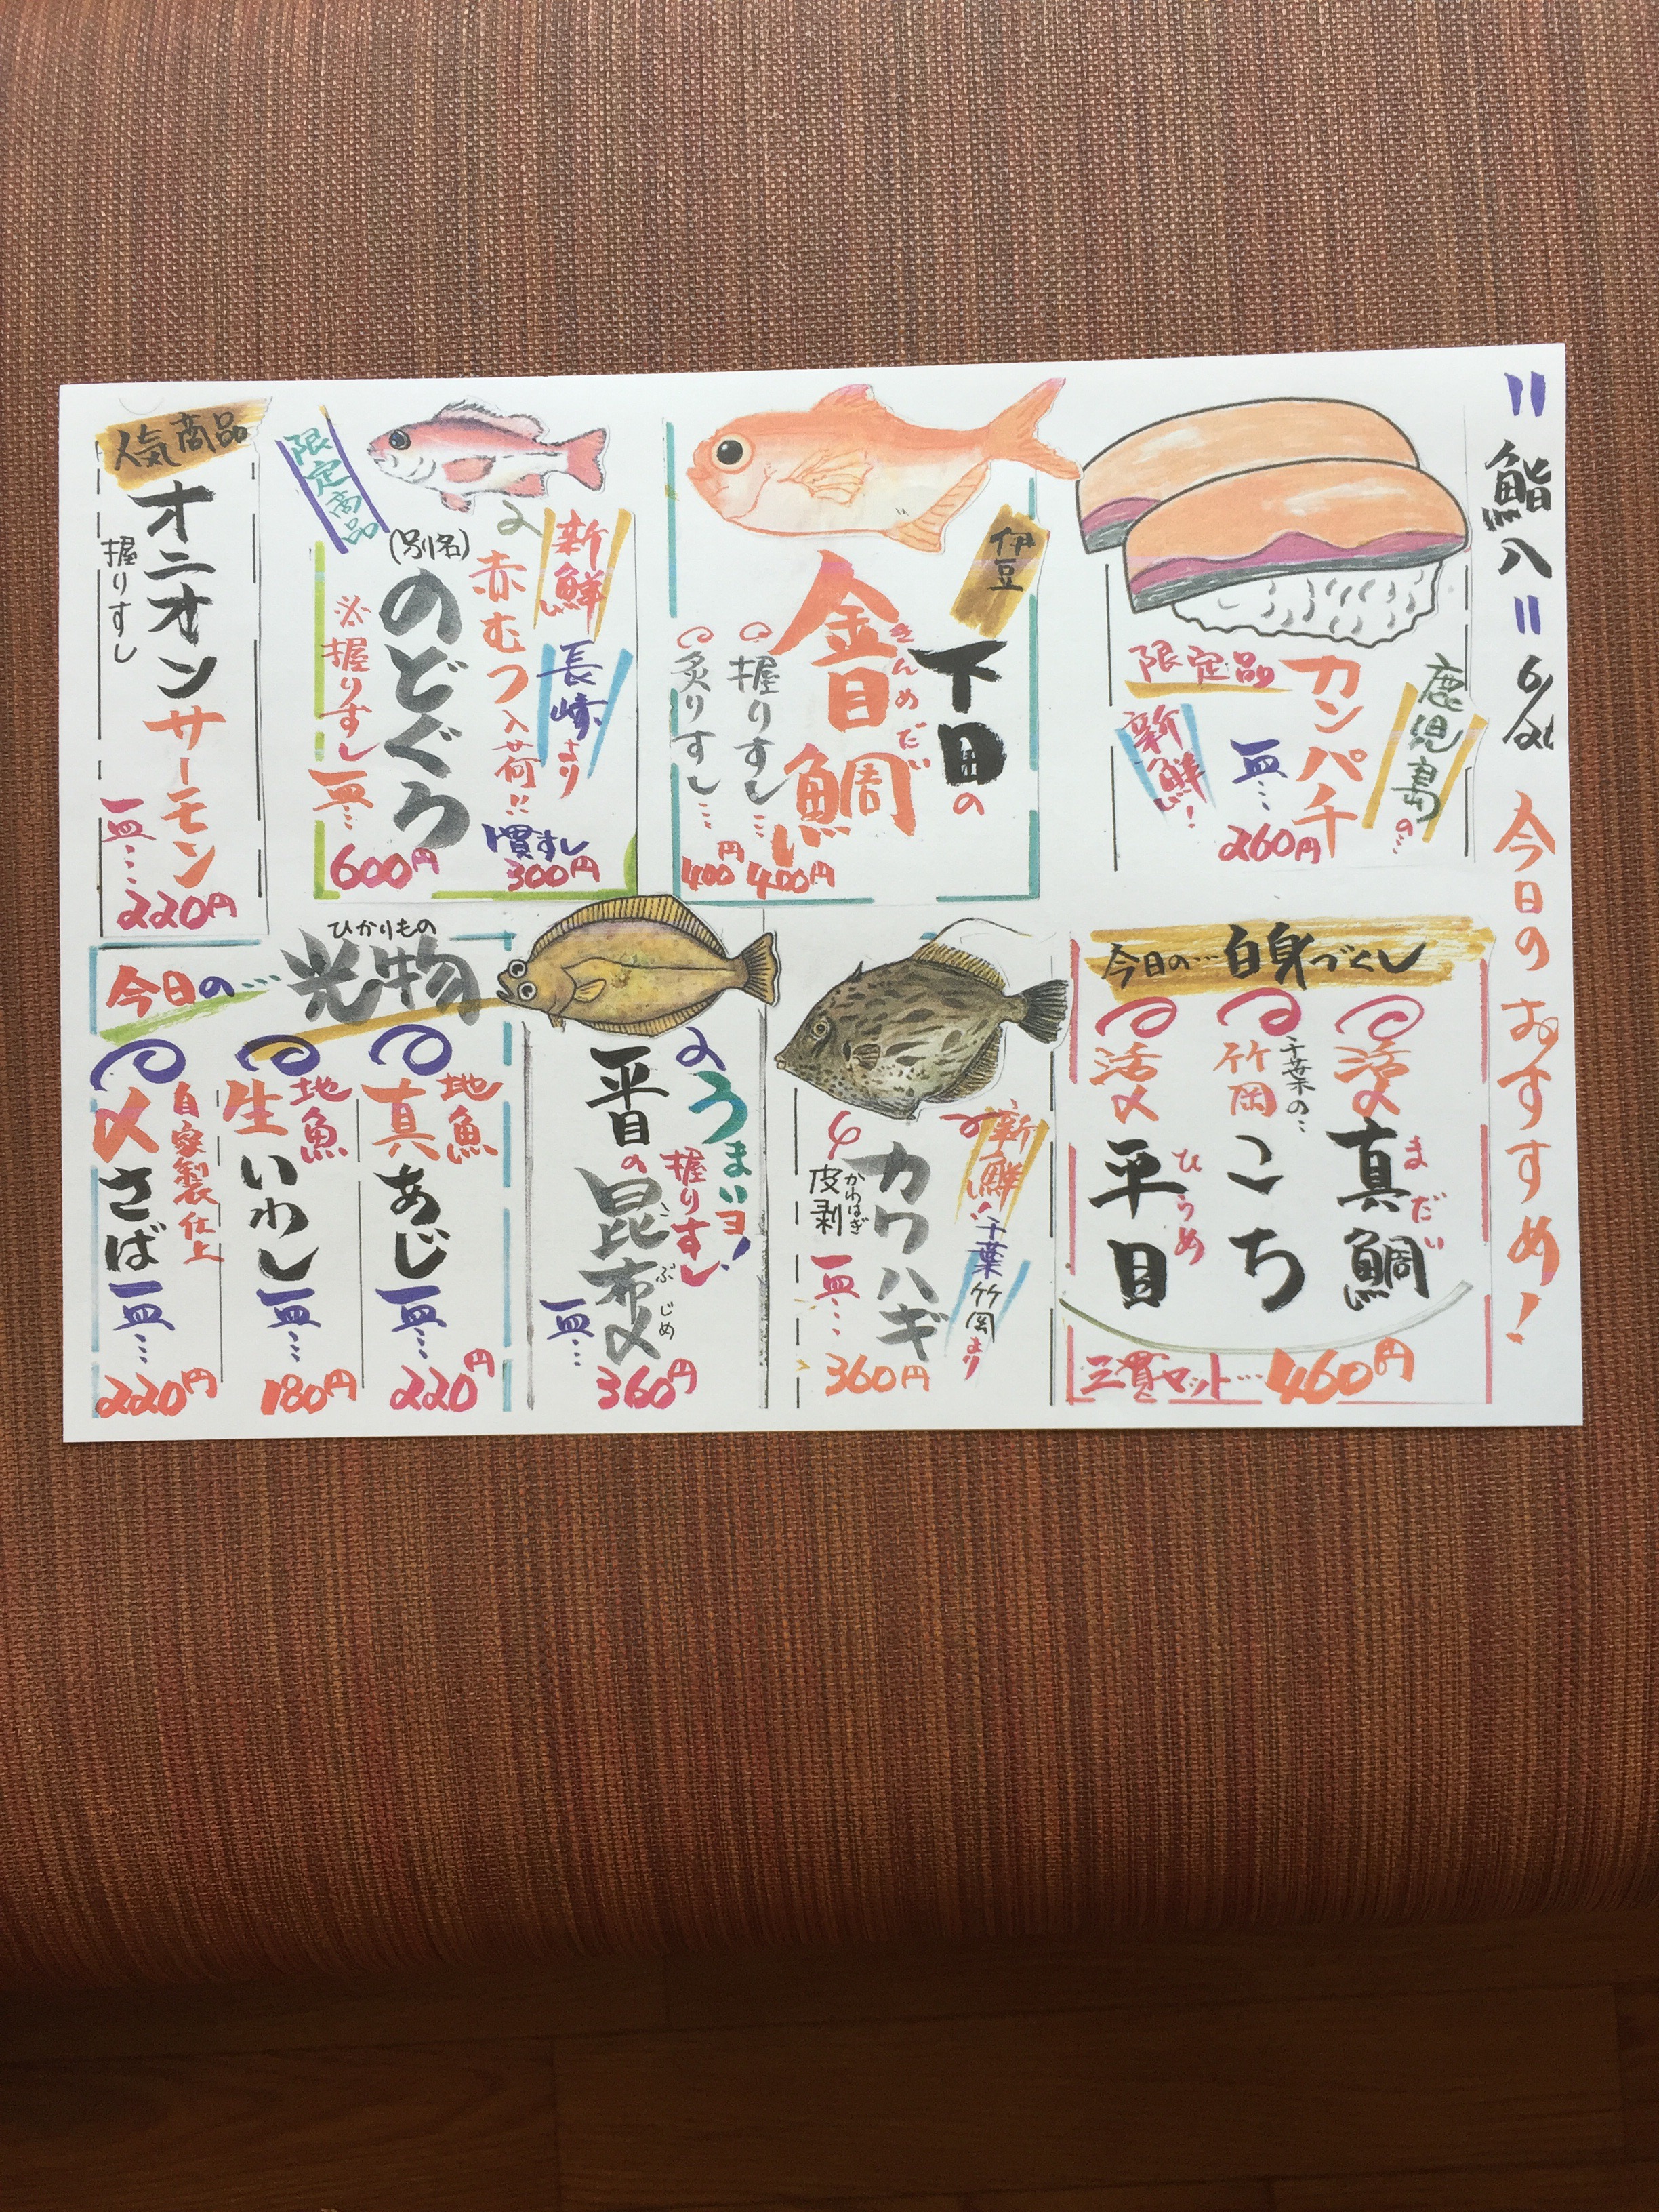 〃鮨八〃 6/21 今日のおすすめ!
鹿児島の…
カンパチ
限定品
新鮮!
一皿… 260円
伊豆
下田の
金目鯛
きんめだい
握りすし… 400円
炙りすし… 400円
限定商品
新鮮い
長崎より
赤むつ入荷!!
(別名)
のどぐろ
※握りすし
一皿… 600円
1貫すし 300円
人気商品
オニオンサーモン
握りすし
一皿… 220円
今日の…白身づくし
活〆 真鯛
まだい
千葉の…
竹岡 こち
活〆 平目
ひらめ
三貫セット… 460円
新鮮!
千葉竹岡より
カワハギ
かわはぎ
皮剥
一皿… 360円
うまいヨ!
握りすし
平目の昆布〆
こぶじめ
一皿… 360円
今日の…光物
ひかりもの
地魚
真あじ 一皿… 220円
地魚
生いわし 一皿… 180円
自家製仕上
〆さば 一皿… 220円